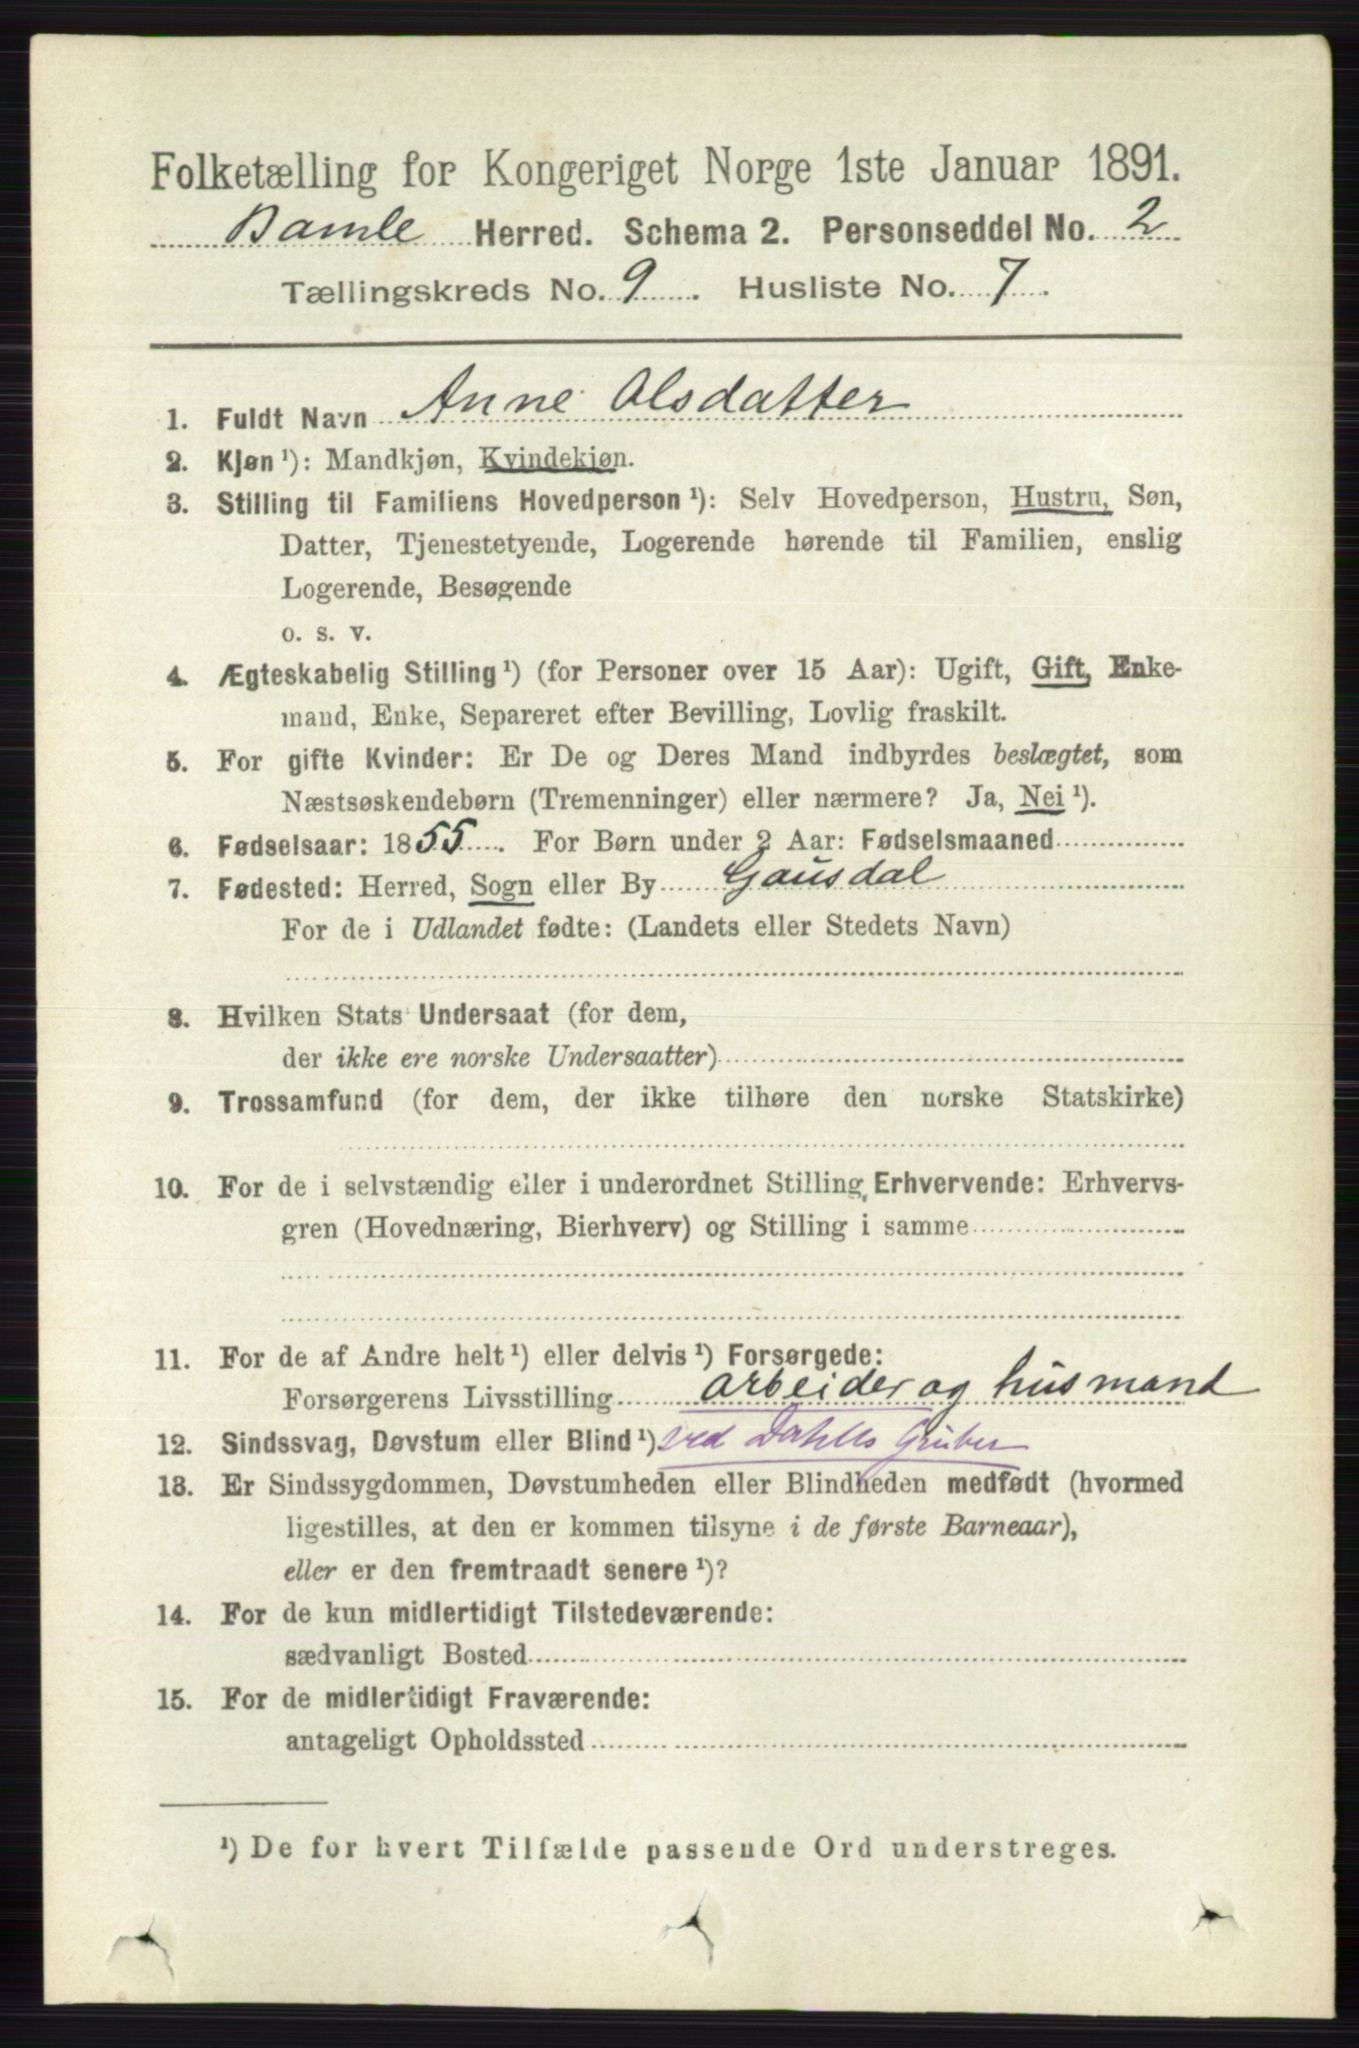 Folketælling for Kongeriget Norge 1ste Januar 1891.
Bamle Herred. Schema 2. Personseddel No. 2
Tællingskreds No. 9. Husliste No. 7.
1. Fuldt Navn Anne Olsdatter
2. Kjøn ¹): Mandkjøn, Kvindekjøn.
3. Stilling til Familiens Hovedperson ¹): Selv Hovedperson, Hustru, Søn,
Datter, Tjenestetyende, Logerende hørende til Familien, enslig
Logerende, Besøgende
o. s. v.
4. Ægteskabelig Stilling ¹) (for Personer over 15 Aar): Ugift, Gift, Enke-
mand, Enke, Separeret efter Bevilling, Lovlig fraskilt.
5. For gifte Kvinder: Er De og Deres Mand indbyrdes beslægtet, som
Næstsøskendebørn (Tremenninger) eller nærmere? Ja, Nei ¹).
6. Fødselsaar: 1855. For Børn under 2 Aar: Fødselsmaaned
7. Fødested: Herred, Sogn eller By Gausdal
For de i Udlandet fødte: (Landets eller Stedets Navn)
8. Hvilken Stats Undersaat (for dem,
der ikke ere norske Undersaatter)
9. Trossamfund (for dem, der ikke tilhøre den norske Statskirke)
10. For de i selvstændig eller i underordnet Stilling Erhvervende: Erhvervs-
gren (Hovednæring, Bierhverv) og Stilling i samme
11. For de af Andre helt ¹) eller delvis ¹) Forsørgede:
Forsørgerens Livsstilling arbeider og husmand
12. Sindssvag, Døvstum eller Blind ¹) ved Gruber
13. Er Sindssygdommen, Døvstumheden eller Blindheden medfødt (hvormed
ligestilles, at den er kommen tilsyne i de første Barneaar),
eller er den fremtraadt senere ¹)?
14. For de kun midlertidigt Tilstedeværende:
sædvanligt Bosted
15. For de midlertidigt Fraværende:
antageligt Opholdssted
¹) De for hvert Tilfælde passende Ord understreges.